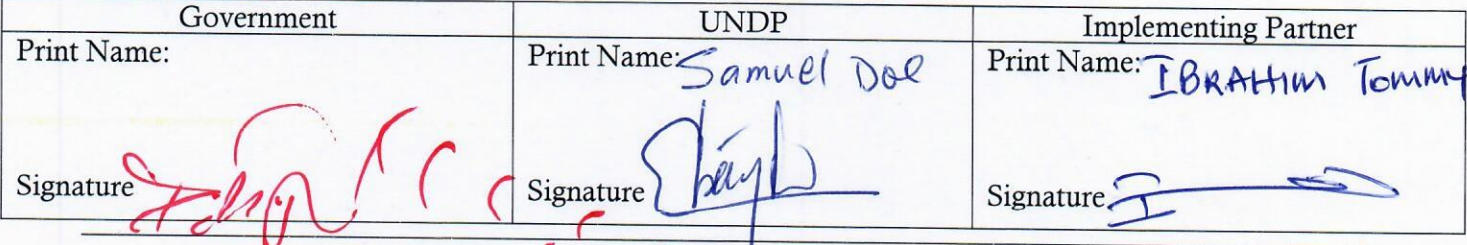 Government UNDP Implementing Partner
Print Name: Print Name: Samuel Doe Print Name: IBRAHIM Tommy
Signature Signature Signature